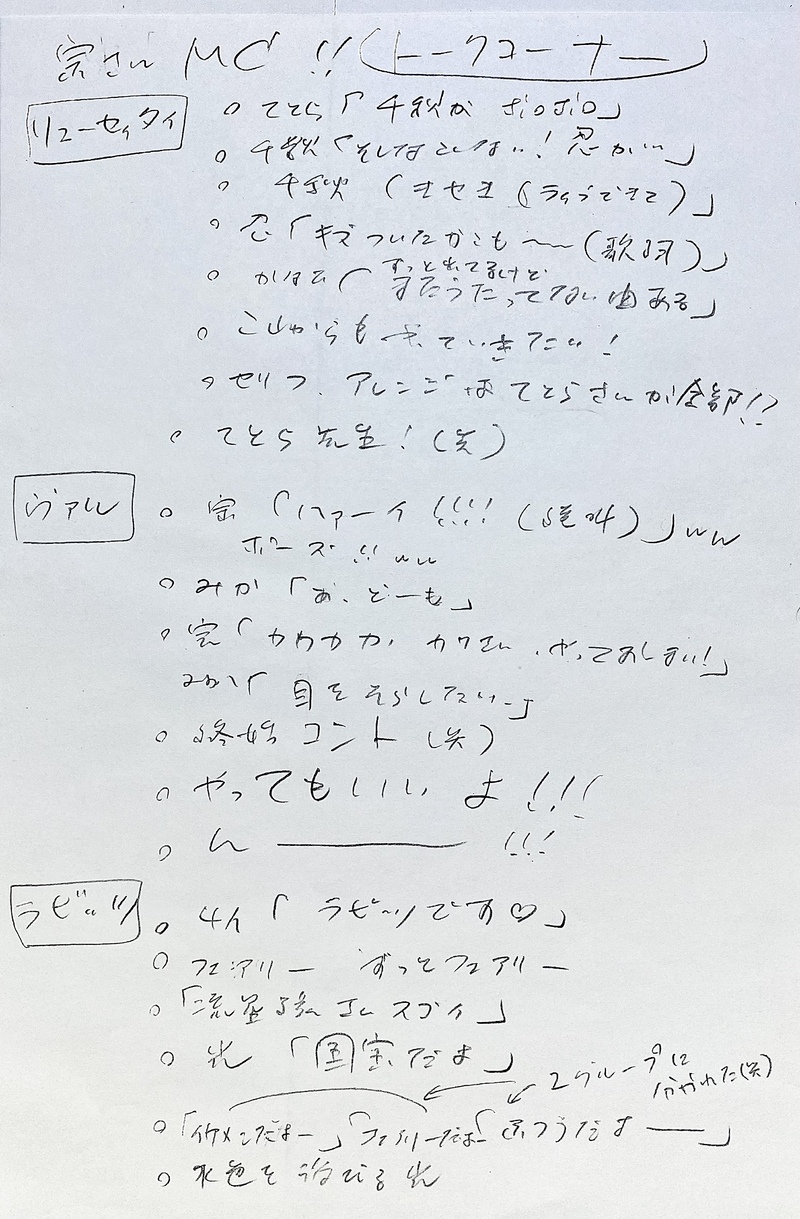 宗さん MC !! (トークコーナー)
リューセイタイ
○ てとら「千秋が ボロボロ」
○ 千秋「そんなことない! 忍がい」
○ 千秋「キセキ(ライブできて)」
○ 忍「キズついたかこも〜〜(歌詞)」
○ かなた「ずっとれてるけど
まだうたってない曲ある」
○ これからも していきたい!
○ セリフ、アレンジはてとらさんが全部!?
○ てとら先生!(笑)
ヴァル
○ 宗「ハァーイ !!!! (絶叫)」ww
ポーズ!! ww
○ みか「あ、どーも」
○ 宗「カワカカ、カワエイ、やっておしまい!」
みか「目をそらしたい」
○ 終始コント(笑)
○ やってもいいよ!!!
○ ん――― !!!
ラビッツ
○ 4人「ラビッツです♡」
○ フェアリー ずっとフェアリー
○ 「流星隊さんスゴイ」
○ 光「国宝だよ」
2グループに
分かれた(笑)
○ 「イケメンだよー」「フェアリーだよ」「ふつうだよ――」
○ 水色を浴びる光